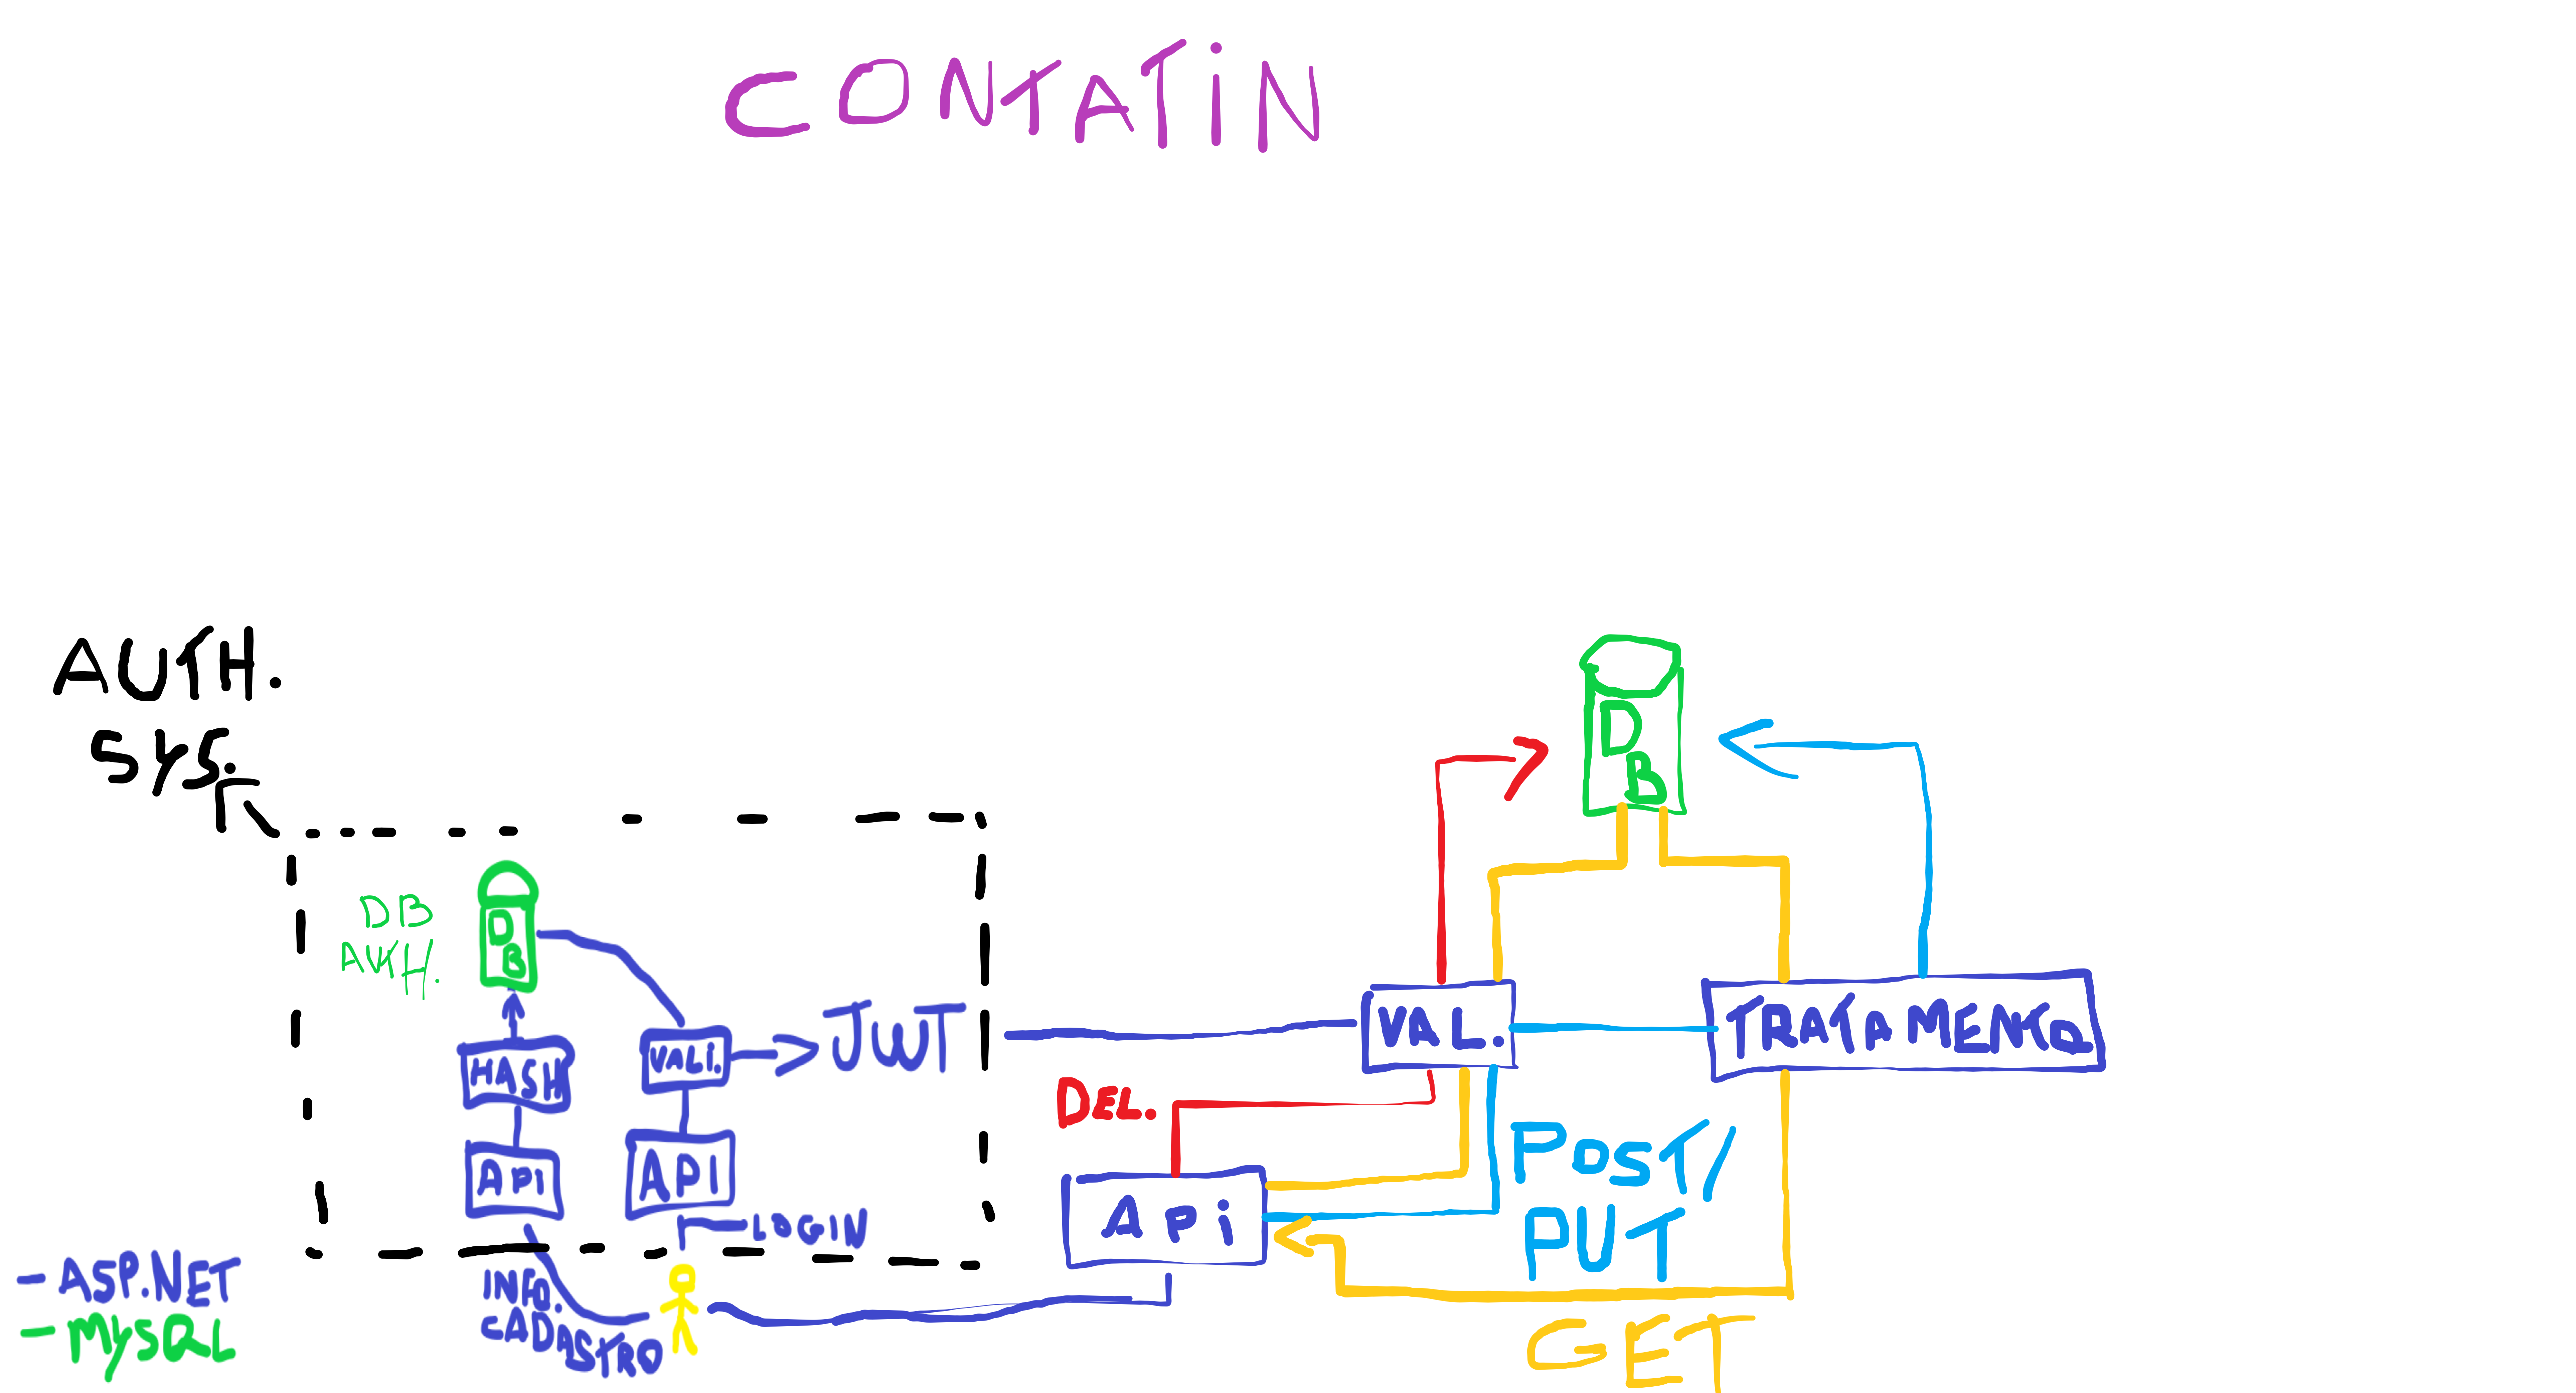 CONTATiN
AUTH.
SYS.
DB
AUTH.
DB
HASH
VALi.
JWT
APi
API
LOGIN
INFO.
CADASTRO
- ASP.NET
- MySQL
DB
VAL.
TRATAMENTO
DEL.
APi
POST/
PUT
GET